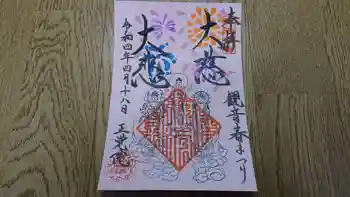 奉拝
観音春まつり
大慈
大悲
令和四年四月十八日